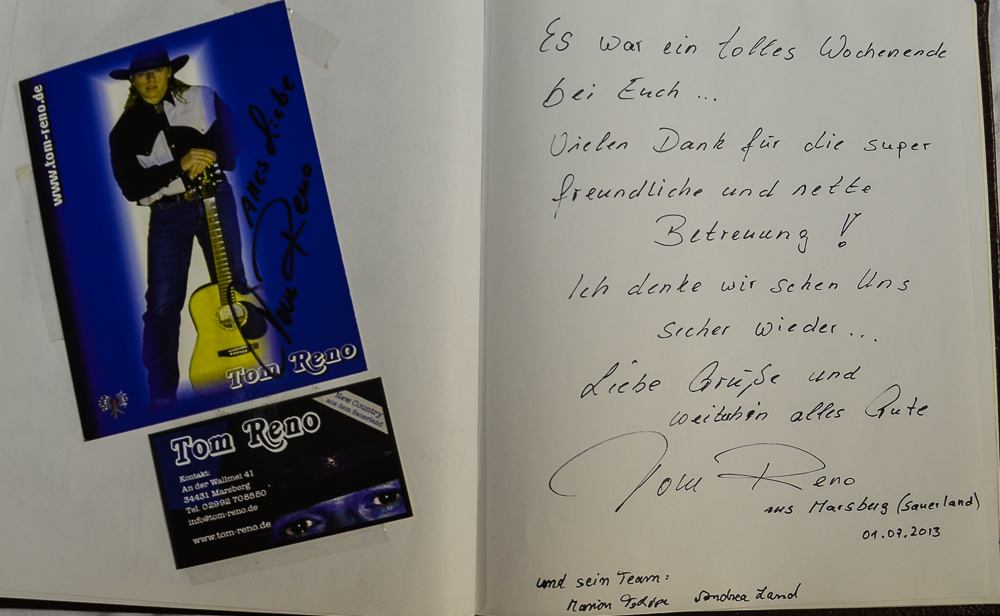 www.tom-reno.de
Alles Liebe
Tom Reno
Tom Reno
New Country
aus dem Sauerland
Tom Reno
Kontakt:
An der Wallmei 41
34431 Marsberg
Tel. 02992 708580
info@tom-reno.de
www.tom-reno.de
Es war ein tolles Wochenende
bei Euch ...
Vielen Dank für die super
freundliche und nette
Betreuung !
Ich denke wir sehen Uns
sicher wieder ...
Liebe Grüße und
weiterhin alles Gute
Tom Reno
aus Marsberg (Sauerland)
01.07.2013
und sein Team:
Marion Andrea Land